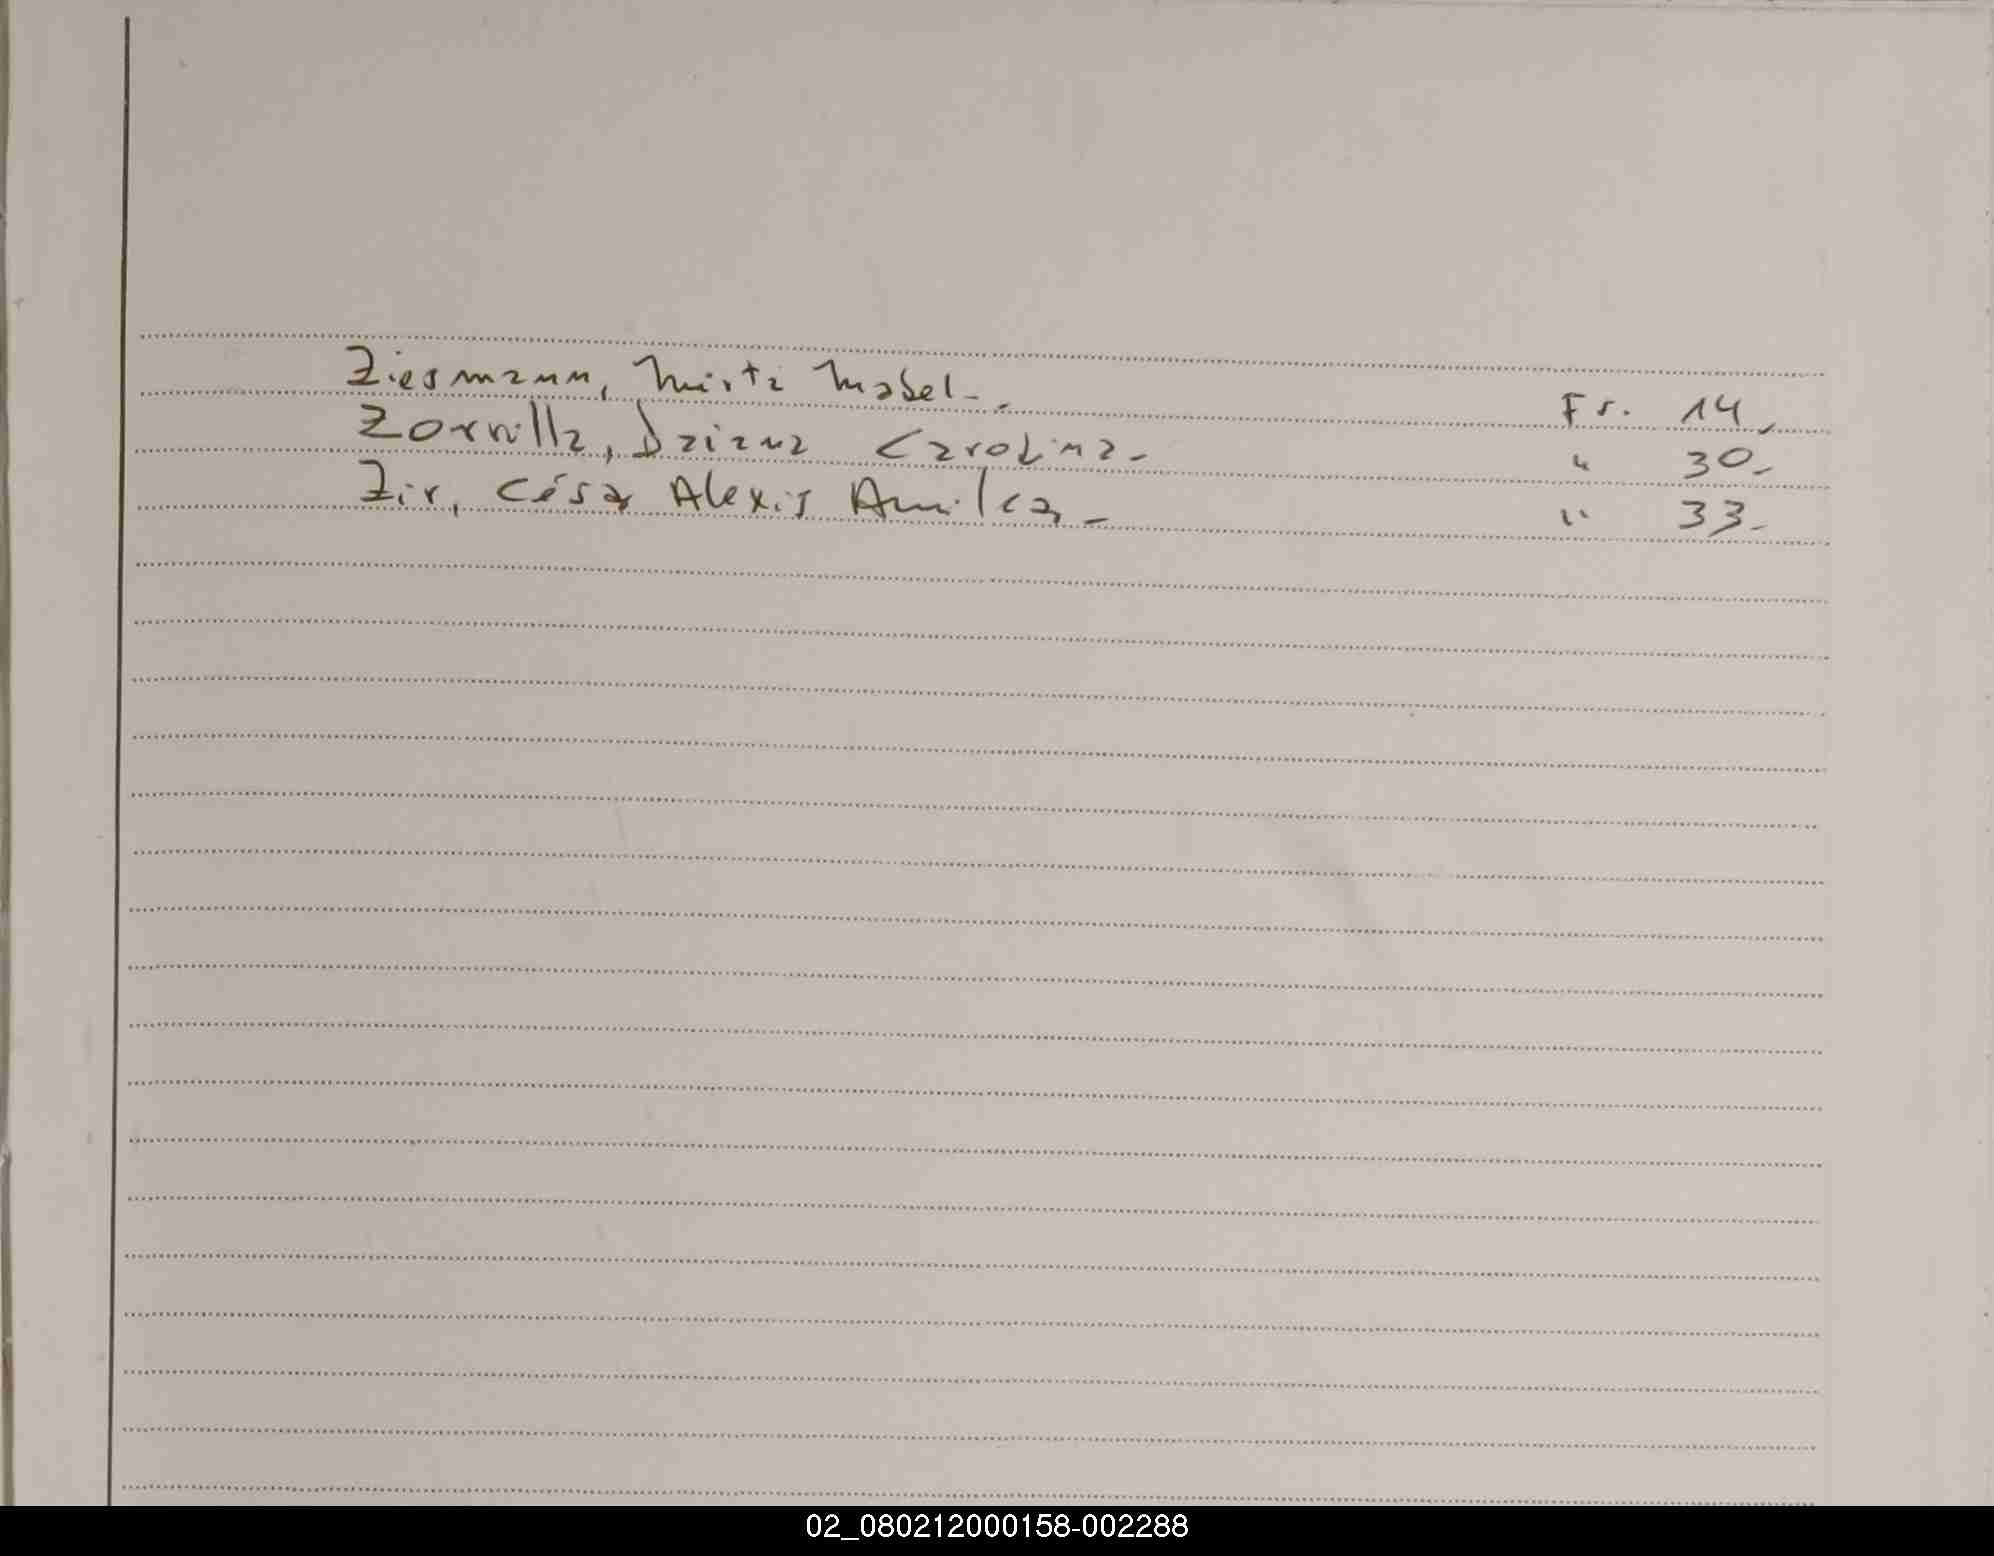 Ziesmann, Mirta Mabel-. Fr. 14-
Zorrilla, Daiana Carolina- " 30-
Zir, César Alexis Amilcar- " 33-
02_080212000158-002288